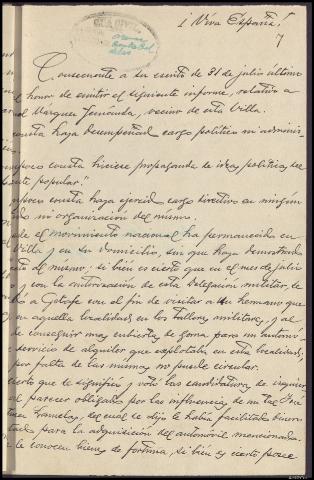 ¡Viva España!
7
Consecuente a su escrito de 31 de julio último
el honor de emitir el siguiente informe, relativo a
Márquez vecino de esta Villa.
consta haya desempeñado cargo político ni adminis-
consta hiciese propaganda de ideas políticas del
nte popular."
consta haya ejercido cargo directivo en ningún
ni organización del mismo.
el movimiento nacional ha permanecido en
Villa y en su domicilio, sin que haya demostrado
al mismo, si bien es cierto que en el mes de julio
y con la autorización de esta Delegación militar, le
a Getafe con el fin de visitar a su hermano que
en aquella localidad en los talleres militares, y al
de conseguir una cubierta de goma para un automó-
servicio de alquiler que explotaba en esta localidad,
por falta de las mismas no puede circular.
cierto que le significó y votó las candidaturas de izquier
al parecer obligado por las influencias de un tal
del cual se dijo le había facilitado dinero
para la adquisición del automóvil mencionado.
le conocen bienes de fortuna, si bien es cierto posee